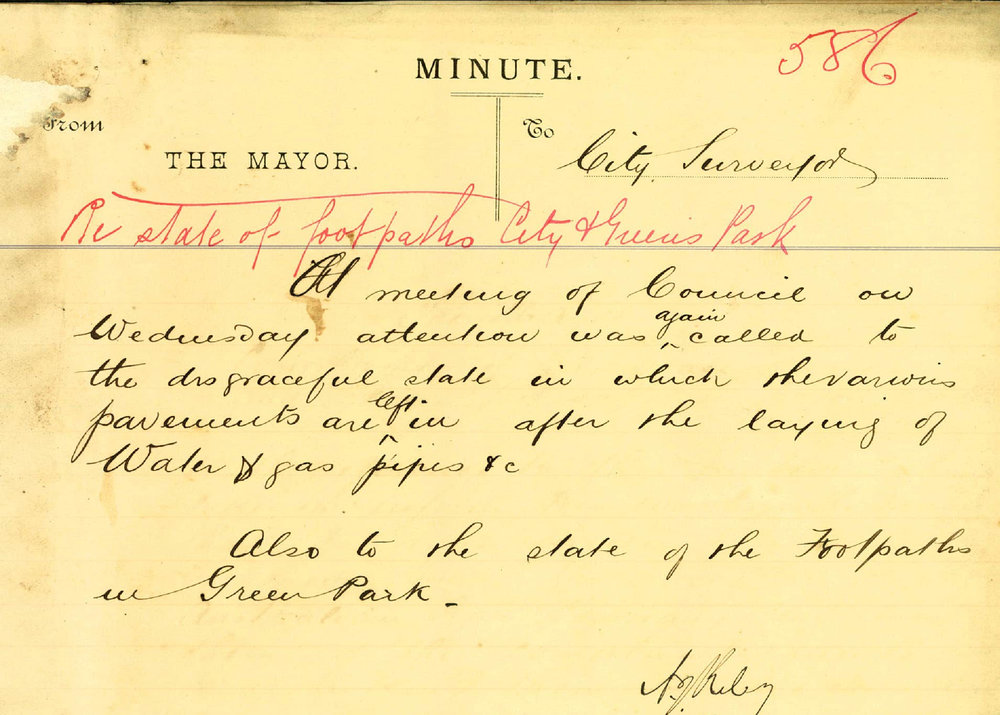 586
MINUTE.
From
To
THE MAYOR.
City Surveyor
Re state of footpaths City & Greens Park
At meeting of Council on
Wednesday attention was again called to
the disgraceful state in which the various
pavements are left in after the laying of
Water & gas pipes &c
Also to the state of the Footpaths
in Green Park _
A J Riley